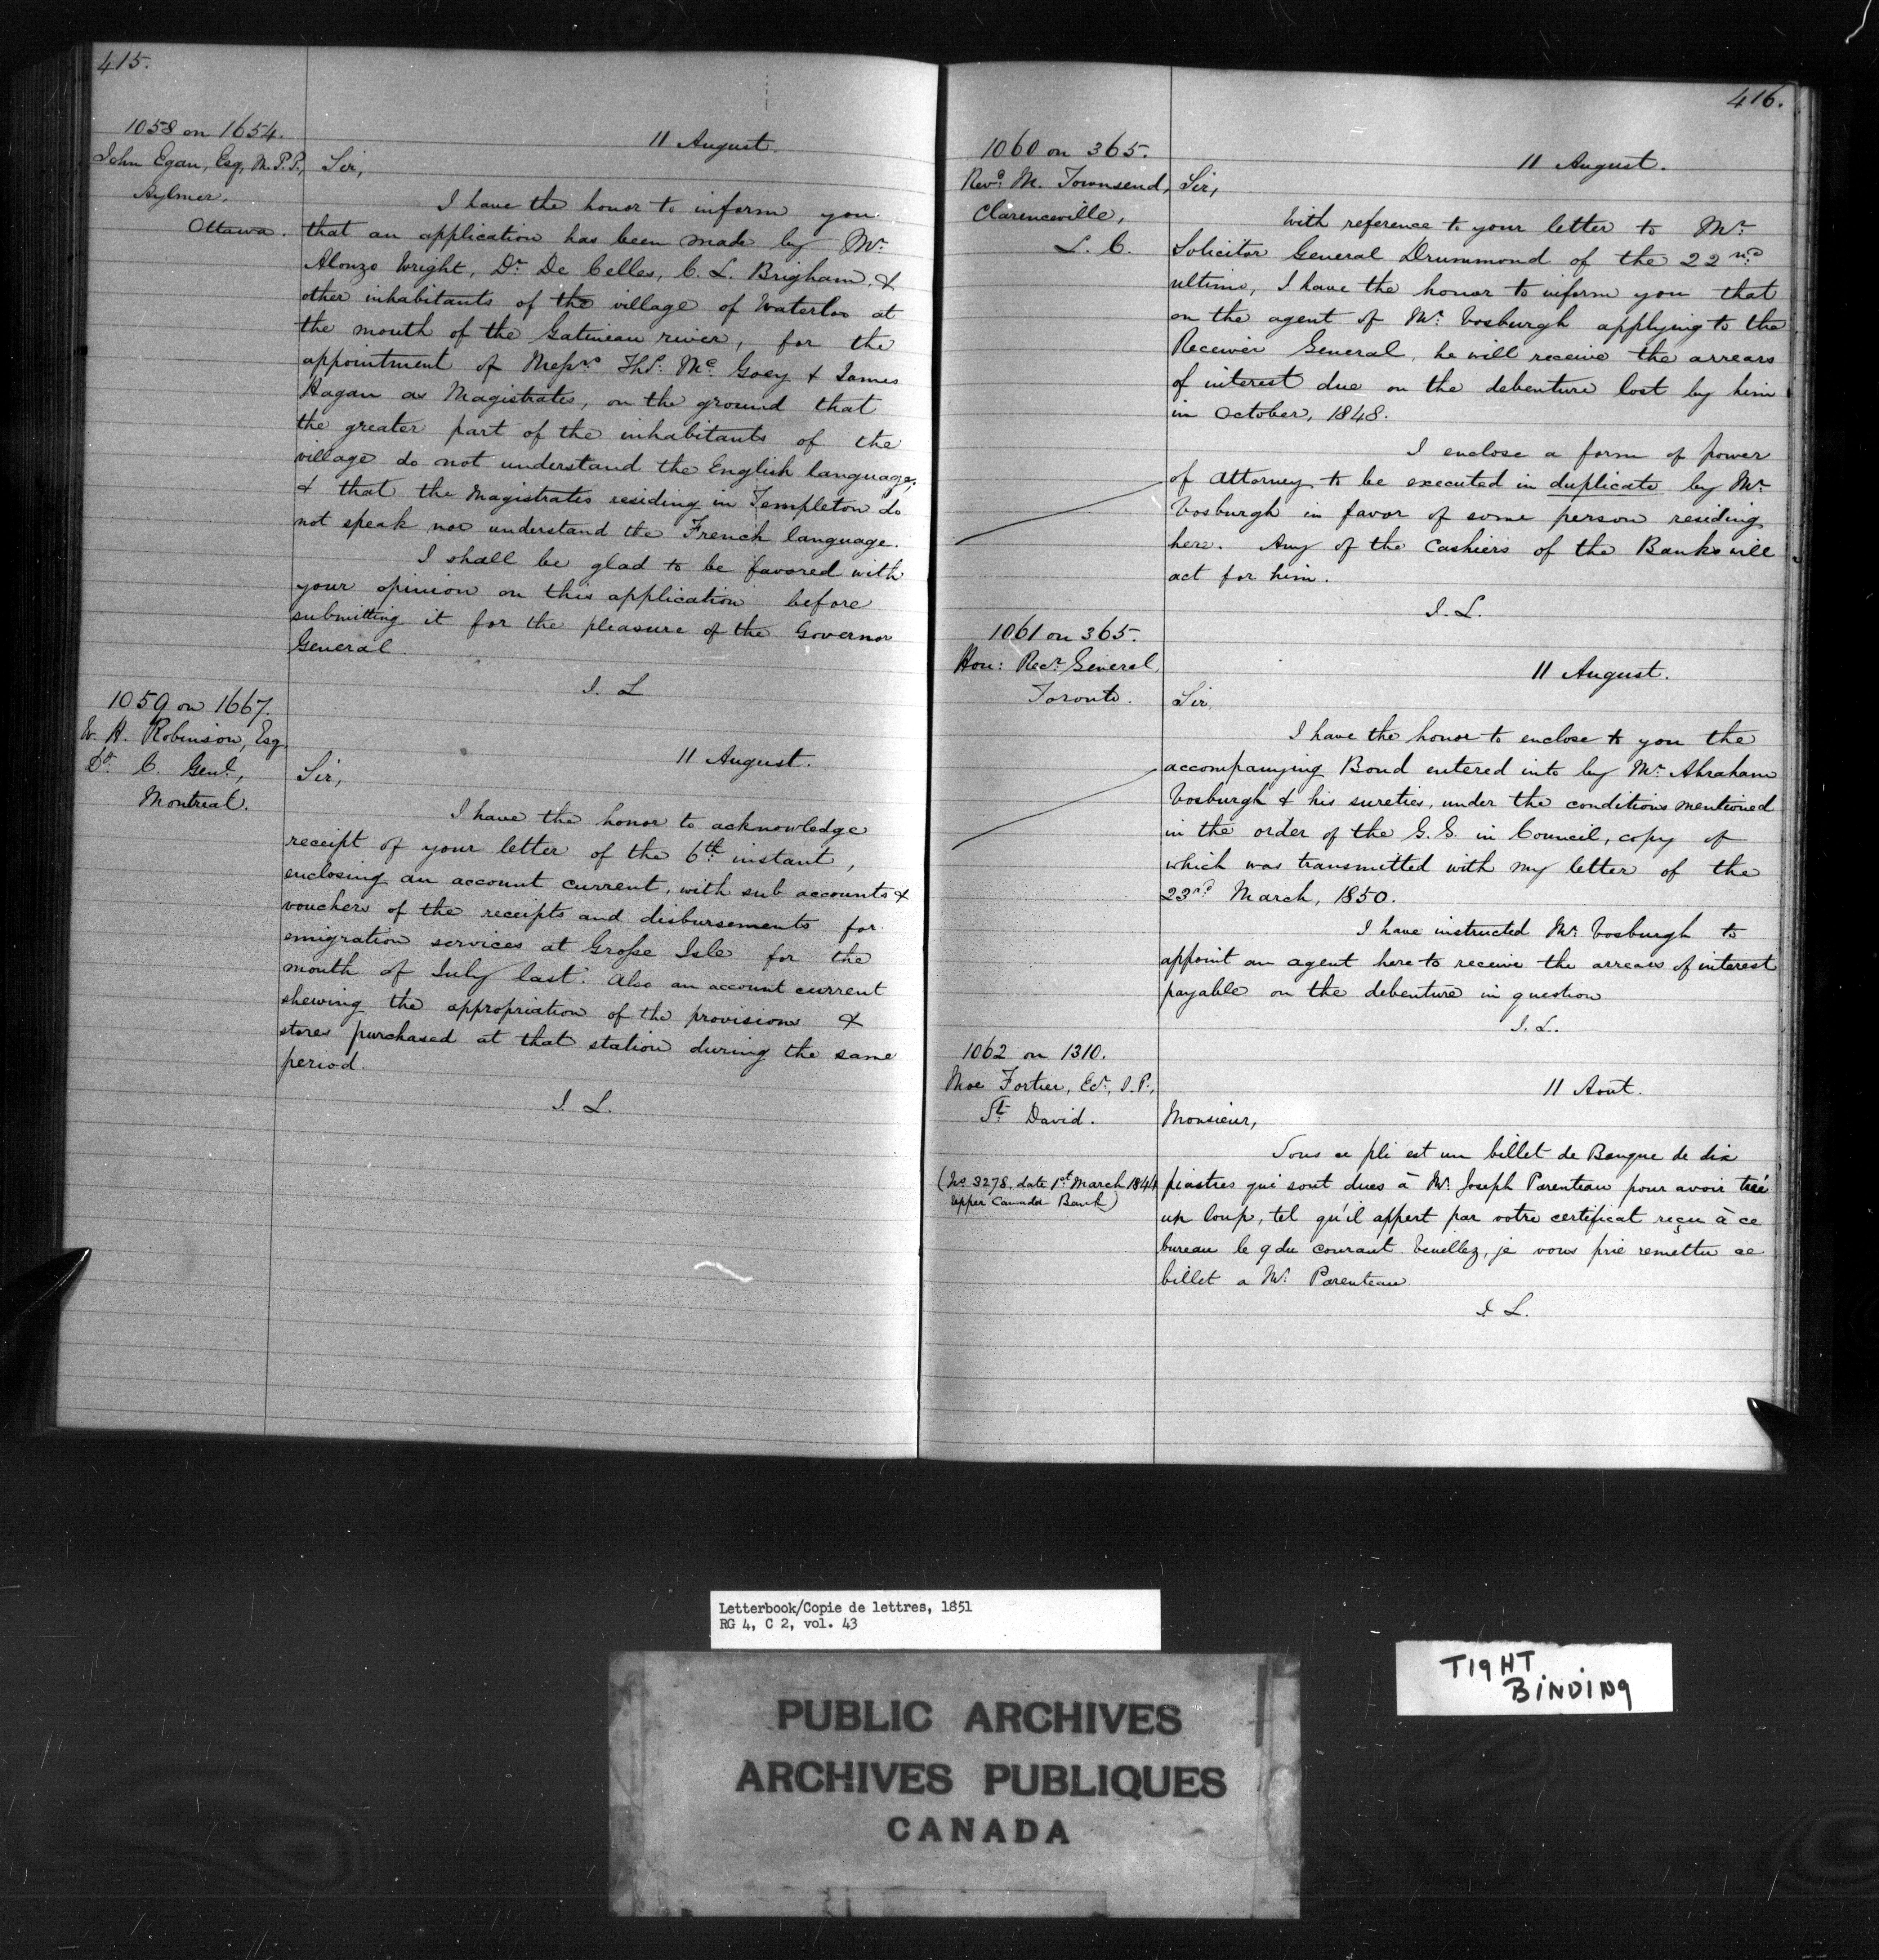 415.
1058 on 1654.
John Egan, Esq, M.P.P.,
Aylmer,
Ottawa.
11 August.
Sir,
I have the honor to inform you
that an application has been made by Mr.
Alonzo Wright, Dr. De Celles, C. L. Brigham, &
other inhabitants of the village of Waterloo at
the mouth of the Gatineau river, for the
appointment of Messrs. Ths. Mc. Goey & James
Hagan as Magistrates, on the ground that
the greater part of the inhabitants of the
village do not understand the English language;
& that the Magistrates residing in Templeton do
not speak nor understand the French language.
I shall be glad to be favored with
your opinion on this application before
submitting it for the pleasure of the Governor
General.
I. L
1059 on 1667.
W. H. Robinson, Esq.
Dy. C. Genl.,
Montreal.
11 August.
Sir,
I have the honor to acknowledge
receipt of your letter of the 6th instant,
enclosing an account current, with sub accounts &
vouchers of the receipts and disbursements for
emigration services at Grosse Isle for the
month of July last. Also an account current
shewing the appropriation of the provisions &
stores purchased at that station during the same
period.
I. L.
416.
1060 on 365.
Revd. M. Townsend,
Clarenceville,
L. C.
11 August.
Sir,
With reference to your letter to Mr.
Solicitor General Drummond of the 22nd
ultimo, I have the honor to inform you that
on the agent of Mr. Vosburgh applying to the
Receiver General, he will receive the arrears
of interest due on the debenture lost by him
in October, 1848.
I enclose a form of power
of Attorney to be executed in duplicate by Mr.
Vosburgh in favor of some person residing
here. Any of the Cashiers of the Banks will
act for him.
I. L.
1061 on 365.
Hon: Recr. General,
Toronto.
11 August.
Sir,
I have the honor to enclose to you the
accompanying Bond entered into by Mr. Abraham
Vosburgh & his sureties, under the conditions mentioned
in the order of the G. G. in Council, copy of
which was transmitted with my letter of the
23rd March, 1850.
I have instructed Mr. Vosburgh to
appoint an agent here to receive the arrears of interest
payable on the debenture in question
I. L.
1062 on 1310.
Moe Fortier, Ecr., J. P.,
St. David.
(No 3278, date 1st March 1844
Upper Canada Bank)
11 Aout.
Monsieur,
Sous ce pli est un billet de Banque de dix
piastres qui sont dues à Mr. Joseph Parenteau pour avoir tué
un loup, tel qu'il appert par votre certificat reçu à ce
bureau le 9 du courant Veuillez, je vous prie remettre ce
billet a Mr. Parenteau
I L.
Letterbook/Copie de lettres, 1851
RG 4, C 2, vol. 43
TIGHT
BINDING
PUBLIC ARCHIVES
ARCHIVES PUBLIQUES
CANADA